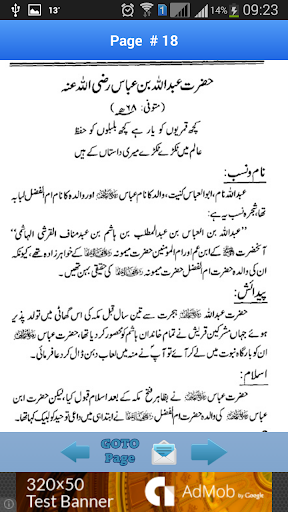 13°
14%
09:23
Page # 18
حضرت عبداللہ بن عباس رضی اللہ عنہ
(متوفی: ۶۸ھ)
کچھ قمریوں کو یاد ہے کچھ بلبلوں کو حفظ
عالم میں ٹکڑے ٹکڑے میری داستاں کے ہیں
نام و نسب:
عبداللہ نام، ابوالعباس کنیت، والد کا نام عباس اور والدہ کا نام ام الفضل لبابہ
تھا، شجرہ نسب یہ ہے:
"عبداللہ بن العباس بن عبدالمطلب بن ہاشم بن عبدمناف القرشی الہاشمی"
آنحضرت کے ابن عم اور ام المومنین حضرت میمونہ کے خواہر زادہ تھے کیونکہ
ان کی والدہ حضرت ام الفضل حضرت میمونہ کی حقیقی بہن تھیں۔
پیدائش:
حضرت عبداللہ ہجرت سے تین سال قبل مکہ کی اس گھاٹی میں تولد پذیر
ہوئے جہاں مشرکین قریش نے تمام خاندان ہاشم کو محصور کر دیا تھا، حضرت عباس
ان کو بارگاہ نبوت میں لے کر آئے تو آپ نے منہ میں لعاب دہن ڈال کر دعا فرمائی۔
اسلام:
حضرت عباس نے بظاہر فتح مکہ کے بعد اسلام قبول کیا، لیکن حضرت ابن
عباس کی والدہ حضرت ام الفضل نے ابتداء ہی میں داعی توحید کو لبیک کہا تھا۔
GOTO
Page
320x50
Test Banner
AdMob by Google